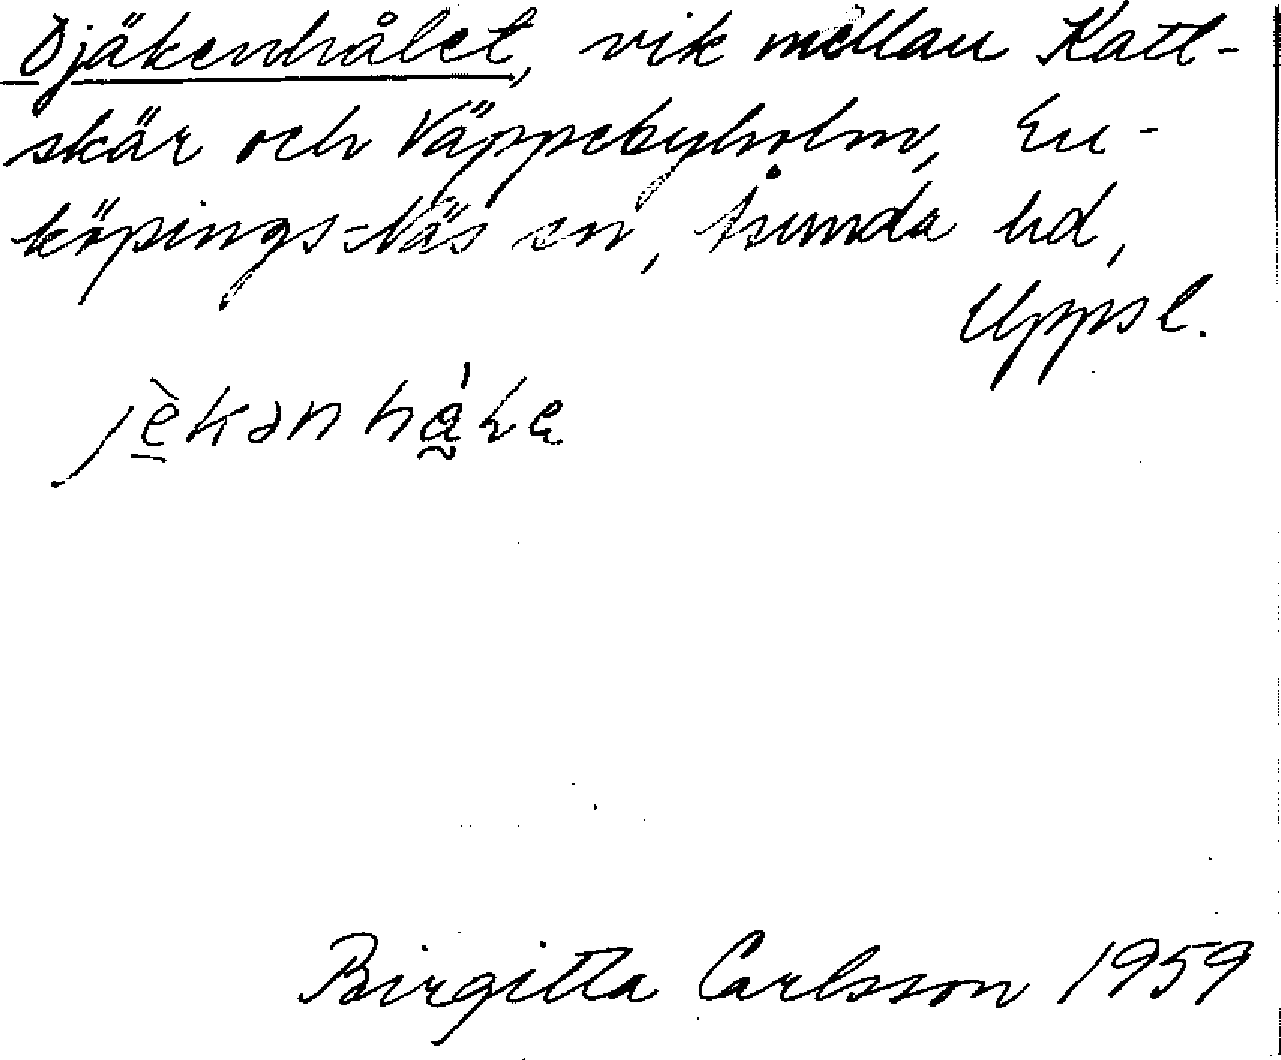 Djäkenhålet, vik mellan Katt-
skär och Väppebyholm, En-
köpings-Näs sn, Åsunda hd,
Uppsl.
Birgitta Carlsson 1959